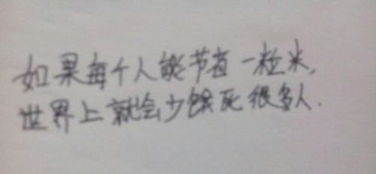 如果每个人能节省一粒米,
世界上就会少饿死很多人.